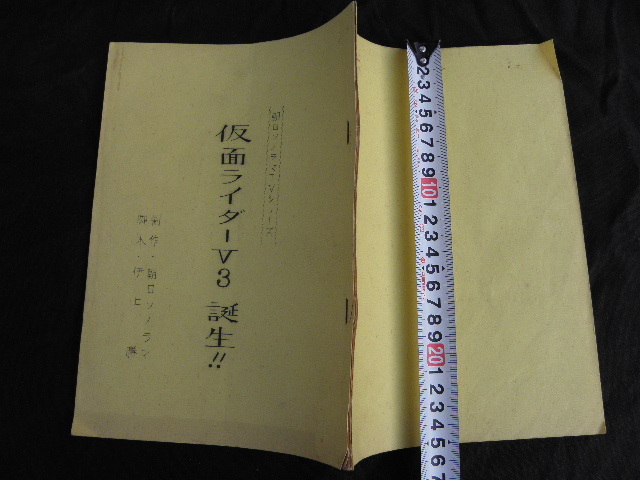 朝日ソノラマシリーズ
仮面ライダーV3 誕生!!
制作・朝日ソノラマ
脚木・伊
2
3
4
5
6
7
8
9
10
1
2
3
4
5
6
7
8
9
20
1
2
3
4
5
6
7